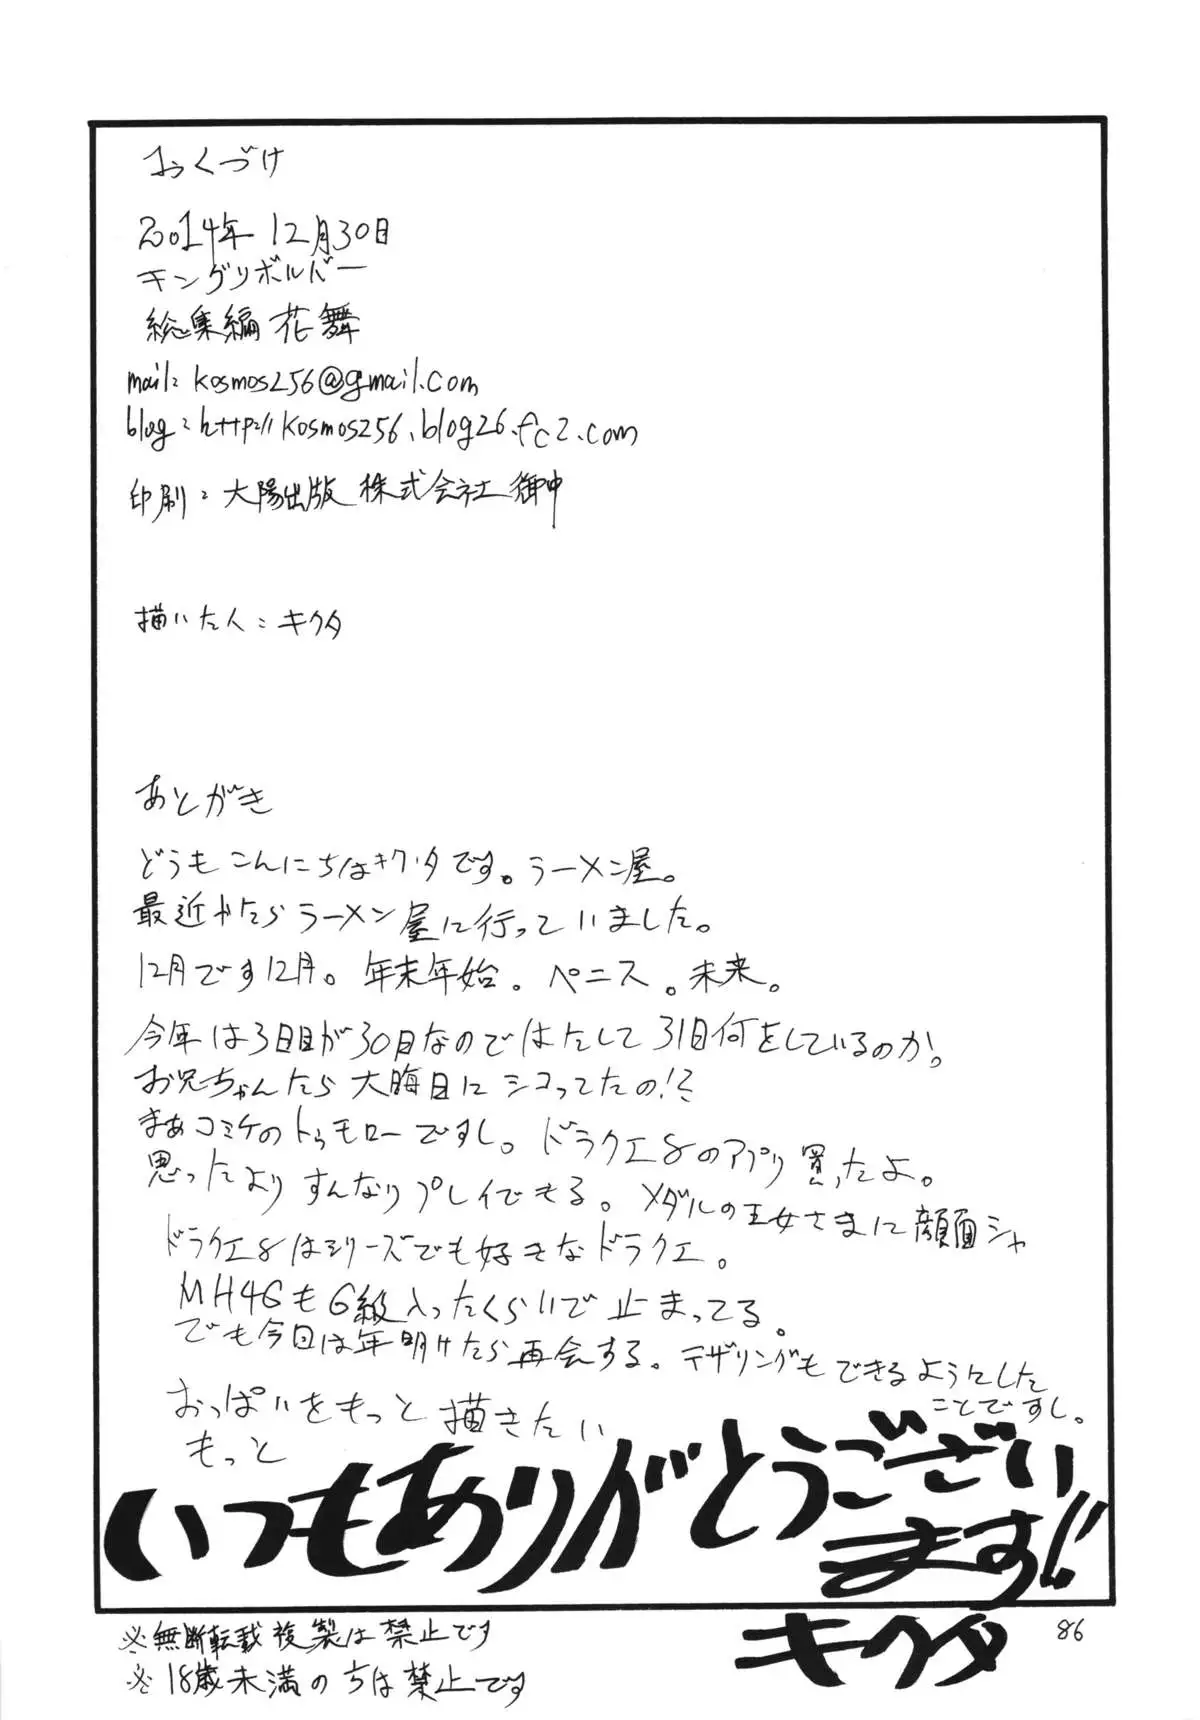 おくづけ
2014年12月30日
キングリボルバー
総集編 花舞
mail: kosmos256@gmail.com
blog: http://kosmos256.blog26.fc2.com
印刷: 大陽出版 株式会社 御中
描いた人: キクタ
あとがき
どうもこんにちはキクタです。ラーメン屋。
最近やたらラーメン屋に行っていました。
12月です12月。年末年始。ペニス。未来。
今年は3日目が30日なのではたして31日何をしているのか。
お兄ちゃんたら大晦日にシコってたの!?
まあコミケのトゥモローですし。ドラクエ8のアプリ買ったよ。
思ったよりすんなりプレイできる。メダルの王女さまに顔面シャ
ドラクエ8はシリーズでも好きなドラクエ。
MH4GもG級入ったくらいで止まってる。
でも今回は年明けたら再会する。テザリングもできるようにした
ことですし。
おっぱいをもっと描きたい
もっと
いつもありがとうござい
ます!!
キクタ
86
※無断転載複製は禁止です
※18歳未満の方は禁止です